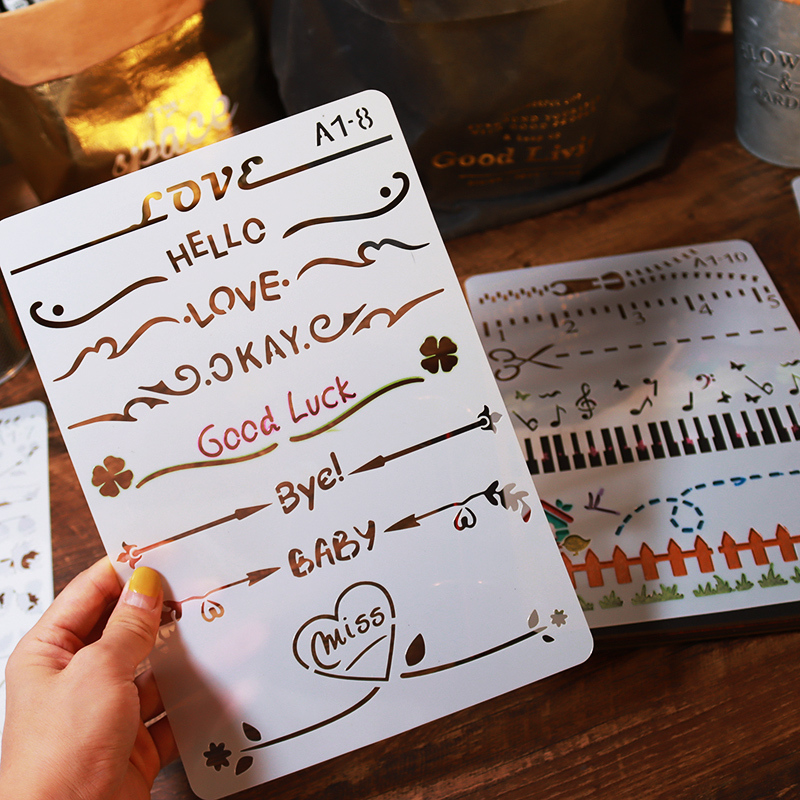 A1-8
LOVE
HELLO
·LOVE·
.OKAY.
Good Luck
Bye!
BABY
miss
A1-10
2 3 4 5
space
Good Livi
LOW
&
GARD